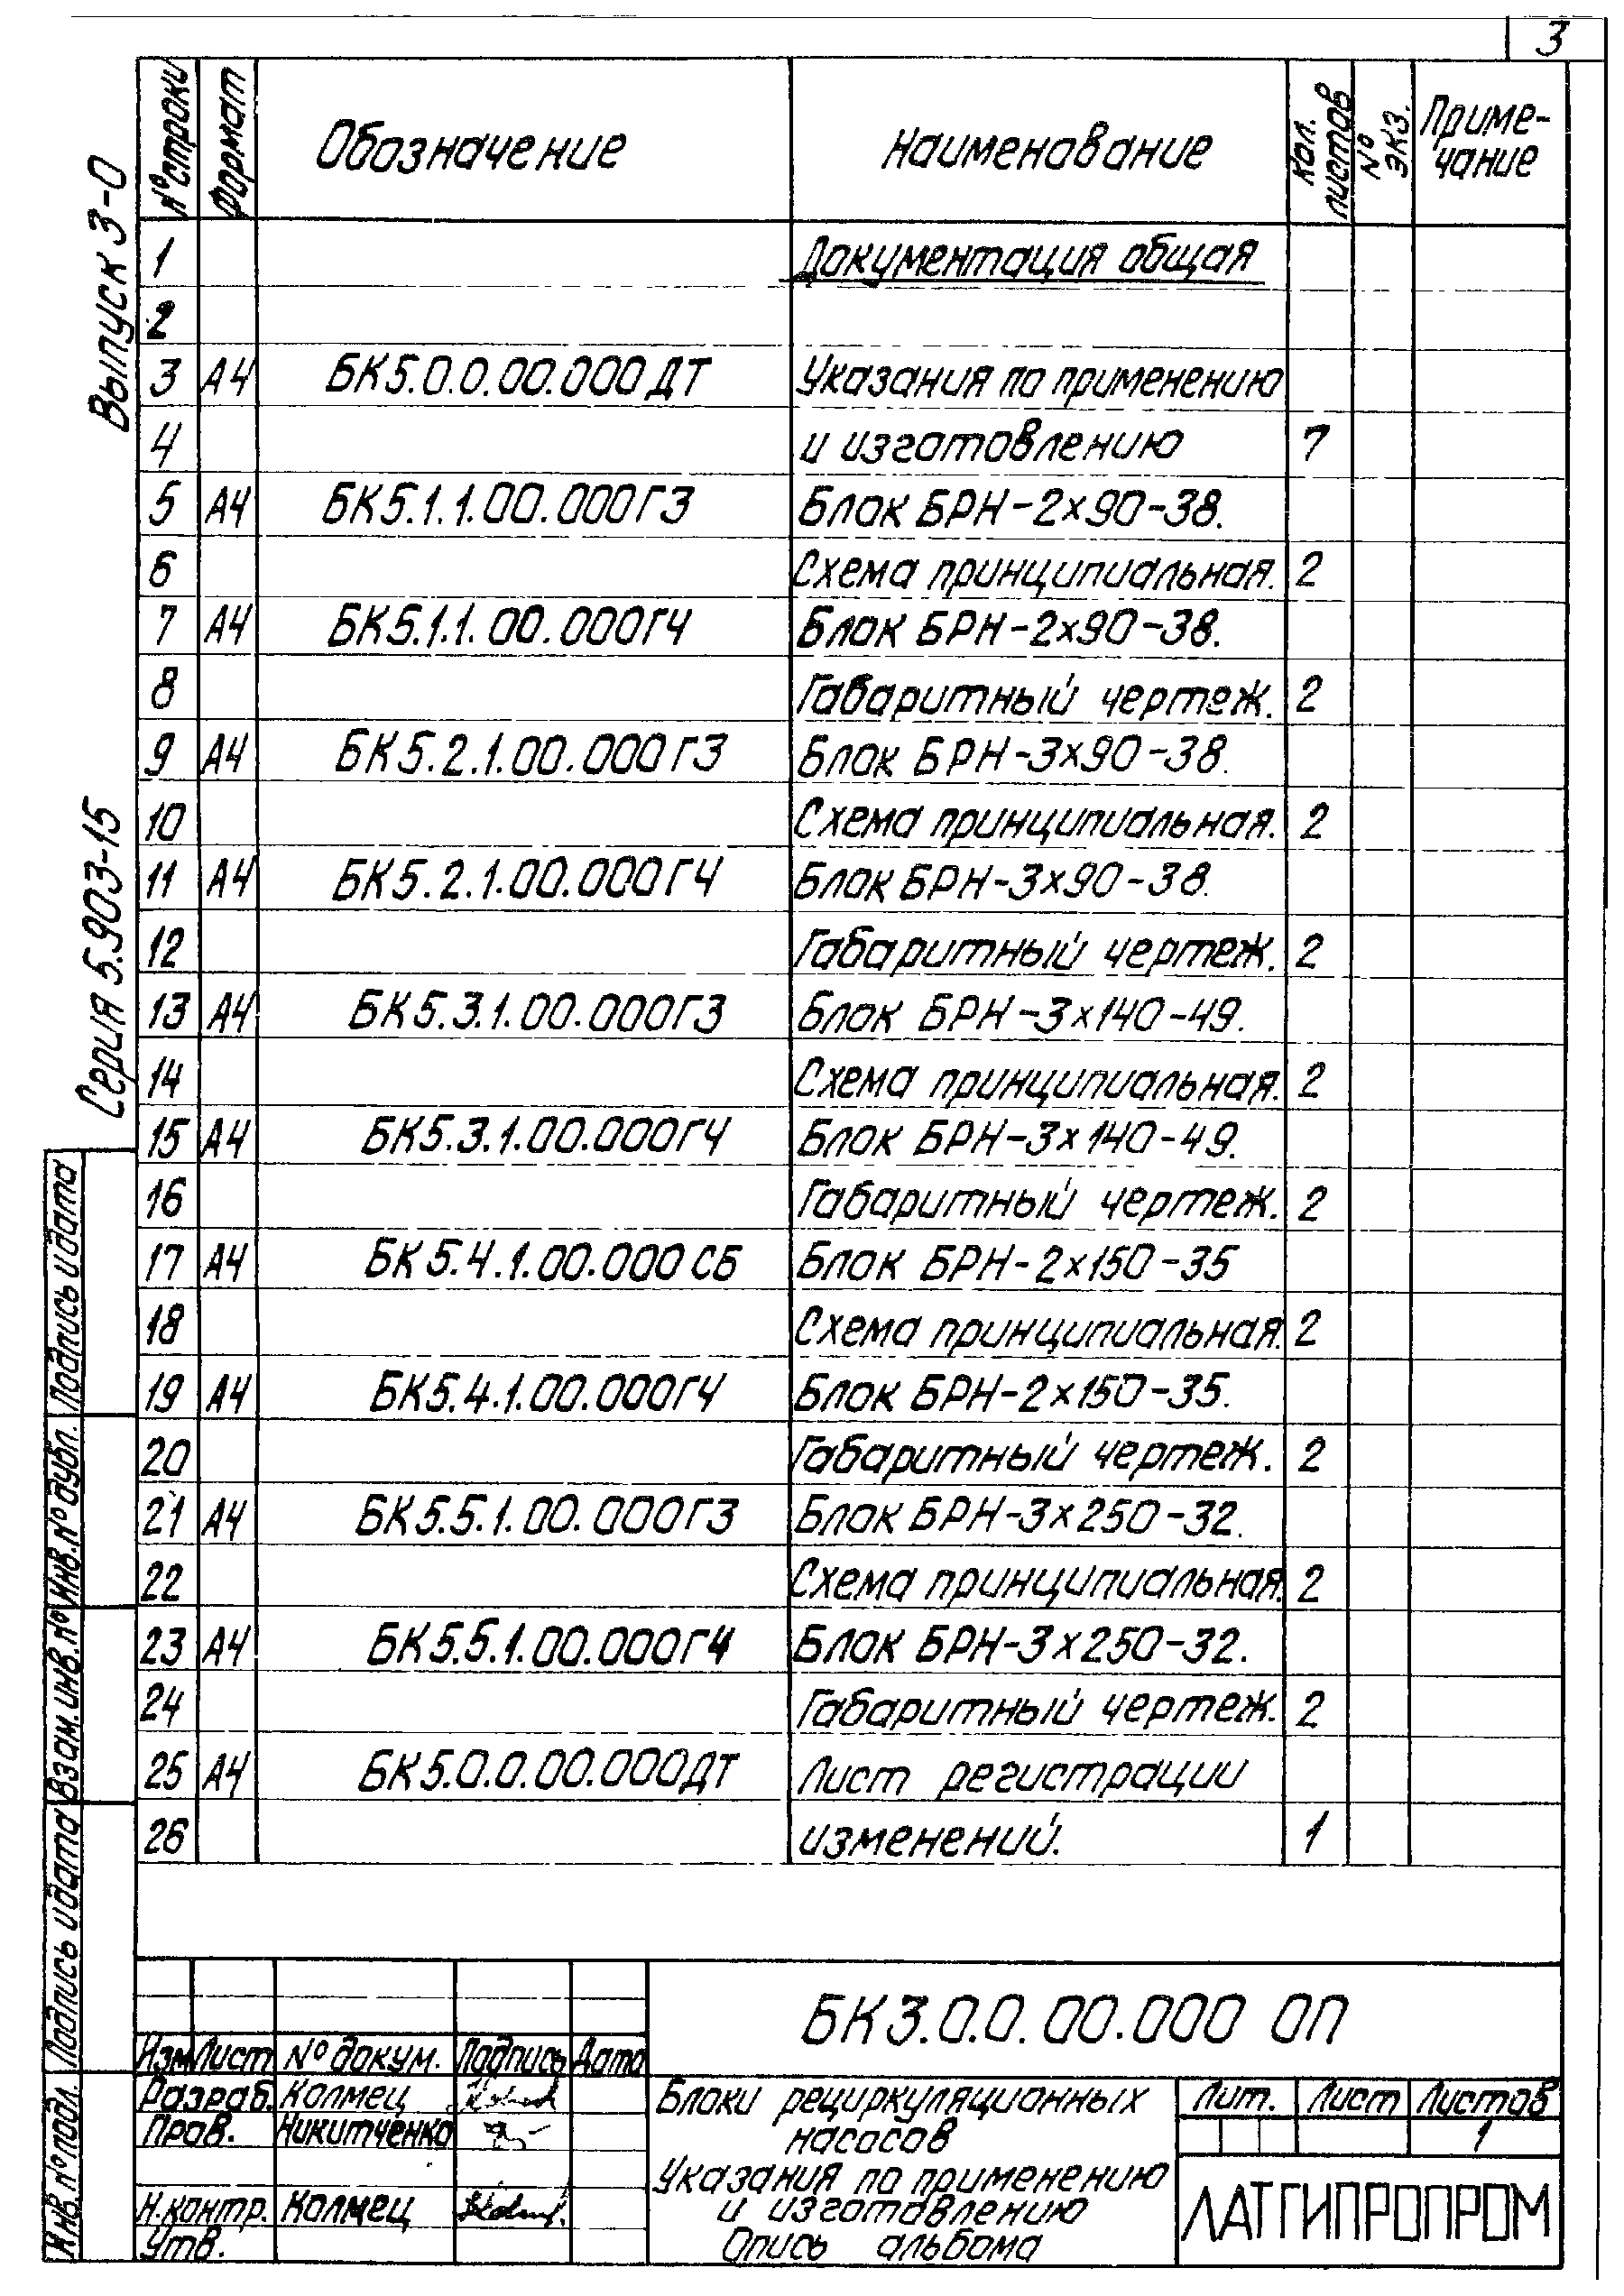 3
Выпуск 3-0
Серия 5.903-15
№ строки Формат Обозначение Наименование Кол. листов № экз. Приме-
чание
1 Документация общая
2
3 А4 БК5.0.0.00.000ДТ Указания по применению
4 и изготовлению 7
5 А4 БК5.1.1.00.000Г3 Блок БРН-2х90-38.
6 Схема принципиальная. 2
7 А4 БК5.1.1.00.000ГЧ Блок БРН-2х90-38.
8 Габаритный чертеж. 2
9 А4 БК5.2.1.00.000Г3 Блок БРН-3х90-38.
10 Схема принципиальная. 2
11 А4 БК5.2.1.00.000ГЧ Блок БРН-3х90-38.
12 Габаритный чертеж. 2
13 А4 БК5.3.1.00.000Г3 Блок БРН-3х140-49.
14 Схема принципиальная. 2
15 А4 БК5.3.1.00.000ГЧ Блок БРН-3х140-49.
16 Габаритный чертеж. 2
17 А4 БК5.4.1.00.000СБ Блок БРН-2х150-35
18 Схема принципиальная. 2
19 А4 БК5.4.1.00.000ГЧ Блок БРН-2х150-35.
20 Габаритный чертеж. 2
21 А4 БК5.5.1.00.000Г3 Блок БРН-3х250-32.
22 Схема принципиальная. 2
23 А4 БК5.5.1.00.000ГЧ Блок БРН-3х250-32.
24 Габаритный чертеж. 2
25 А4 БК5.0.0.00.000ДТ Лист регистрации
26 изменений. 1
Подпись и дата
Инв.№ дубл.
Взам.инв.№
Подпись и дата
Инв.№ подл.
БК3.0.0.00.000 ОП
Изм Лист № докум. Подпись Дата
Разраб. Колмец
Пров. Никитченко
Н.контр. Колмец
Утв.
Блоки рециркуляционных
насосов
Указания по применению
и изготовлению
Опись альбома
Лит. Лист Листов
1
ЛАТГИПРОПРОМ